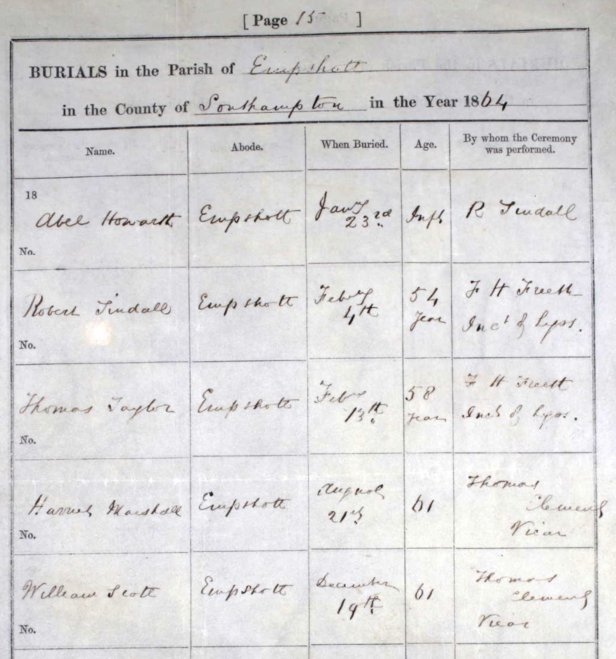 [ Page 15 ]
BURIALS in the Parish of Empshott
in the County of Southampton in the Year 1864
Name. Abode. When Buried. Age. By whom the Ceremony was performed.
18
Abel Howarth Empshott Jany 23rd Inft R Tindall
No.
Robert Tindall Empshott Feby 4th 54 Year F H Freeth Inct of Lyss.
No.
Thomas Taylor Empshott Feby 13th. 58 Year F H Freeth Inct of Lyss.
No.
Marshall Empshott August 21st 61 Thomas Clements Vicar
No.
William Scott Empshott December 19th. 61 Thomas Clements Vicar
No.